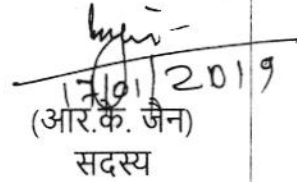 17/01/2019
(आर.के. जैन)
सदस्य